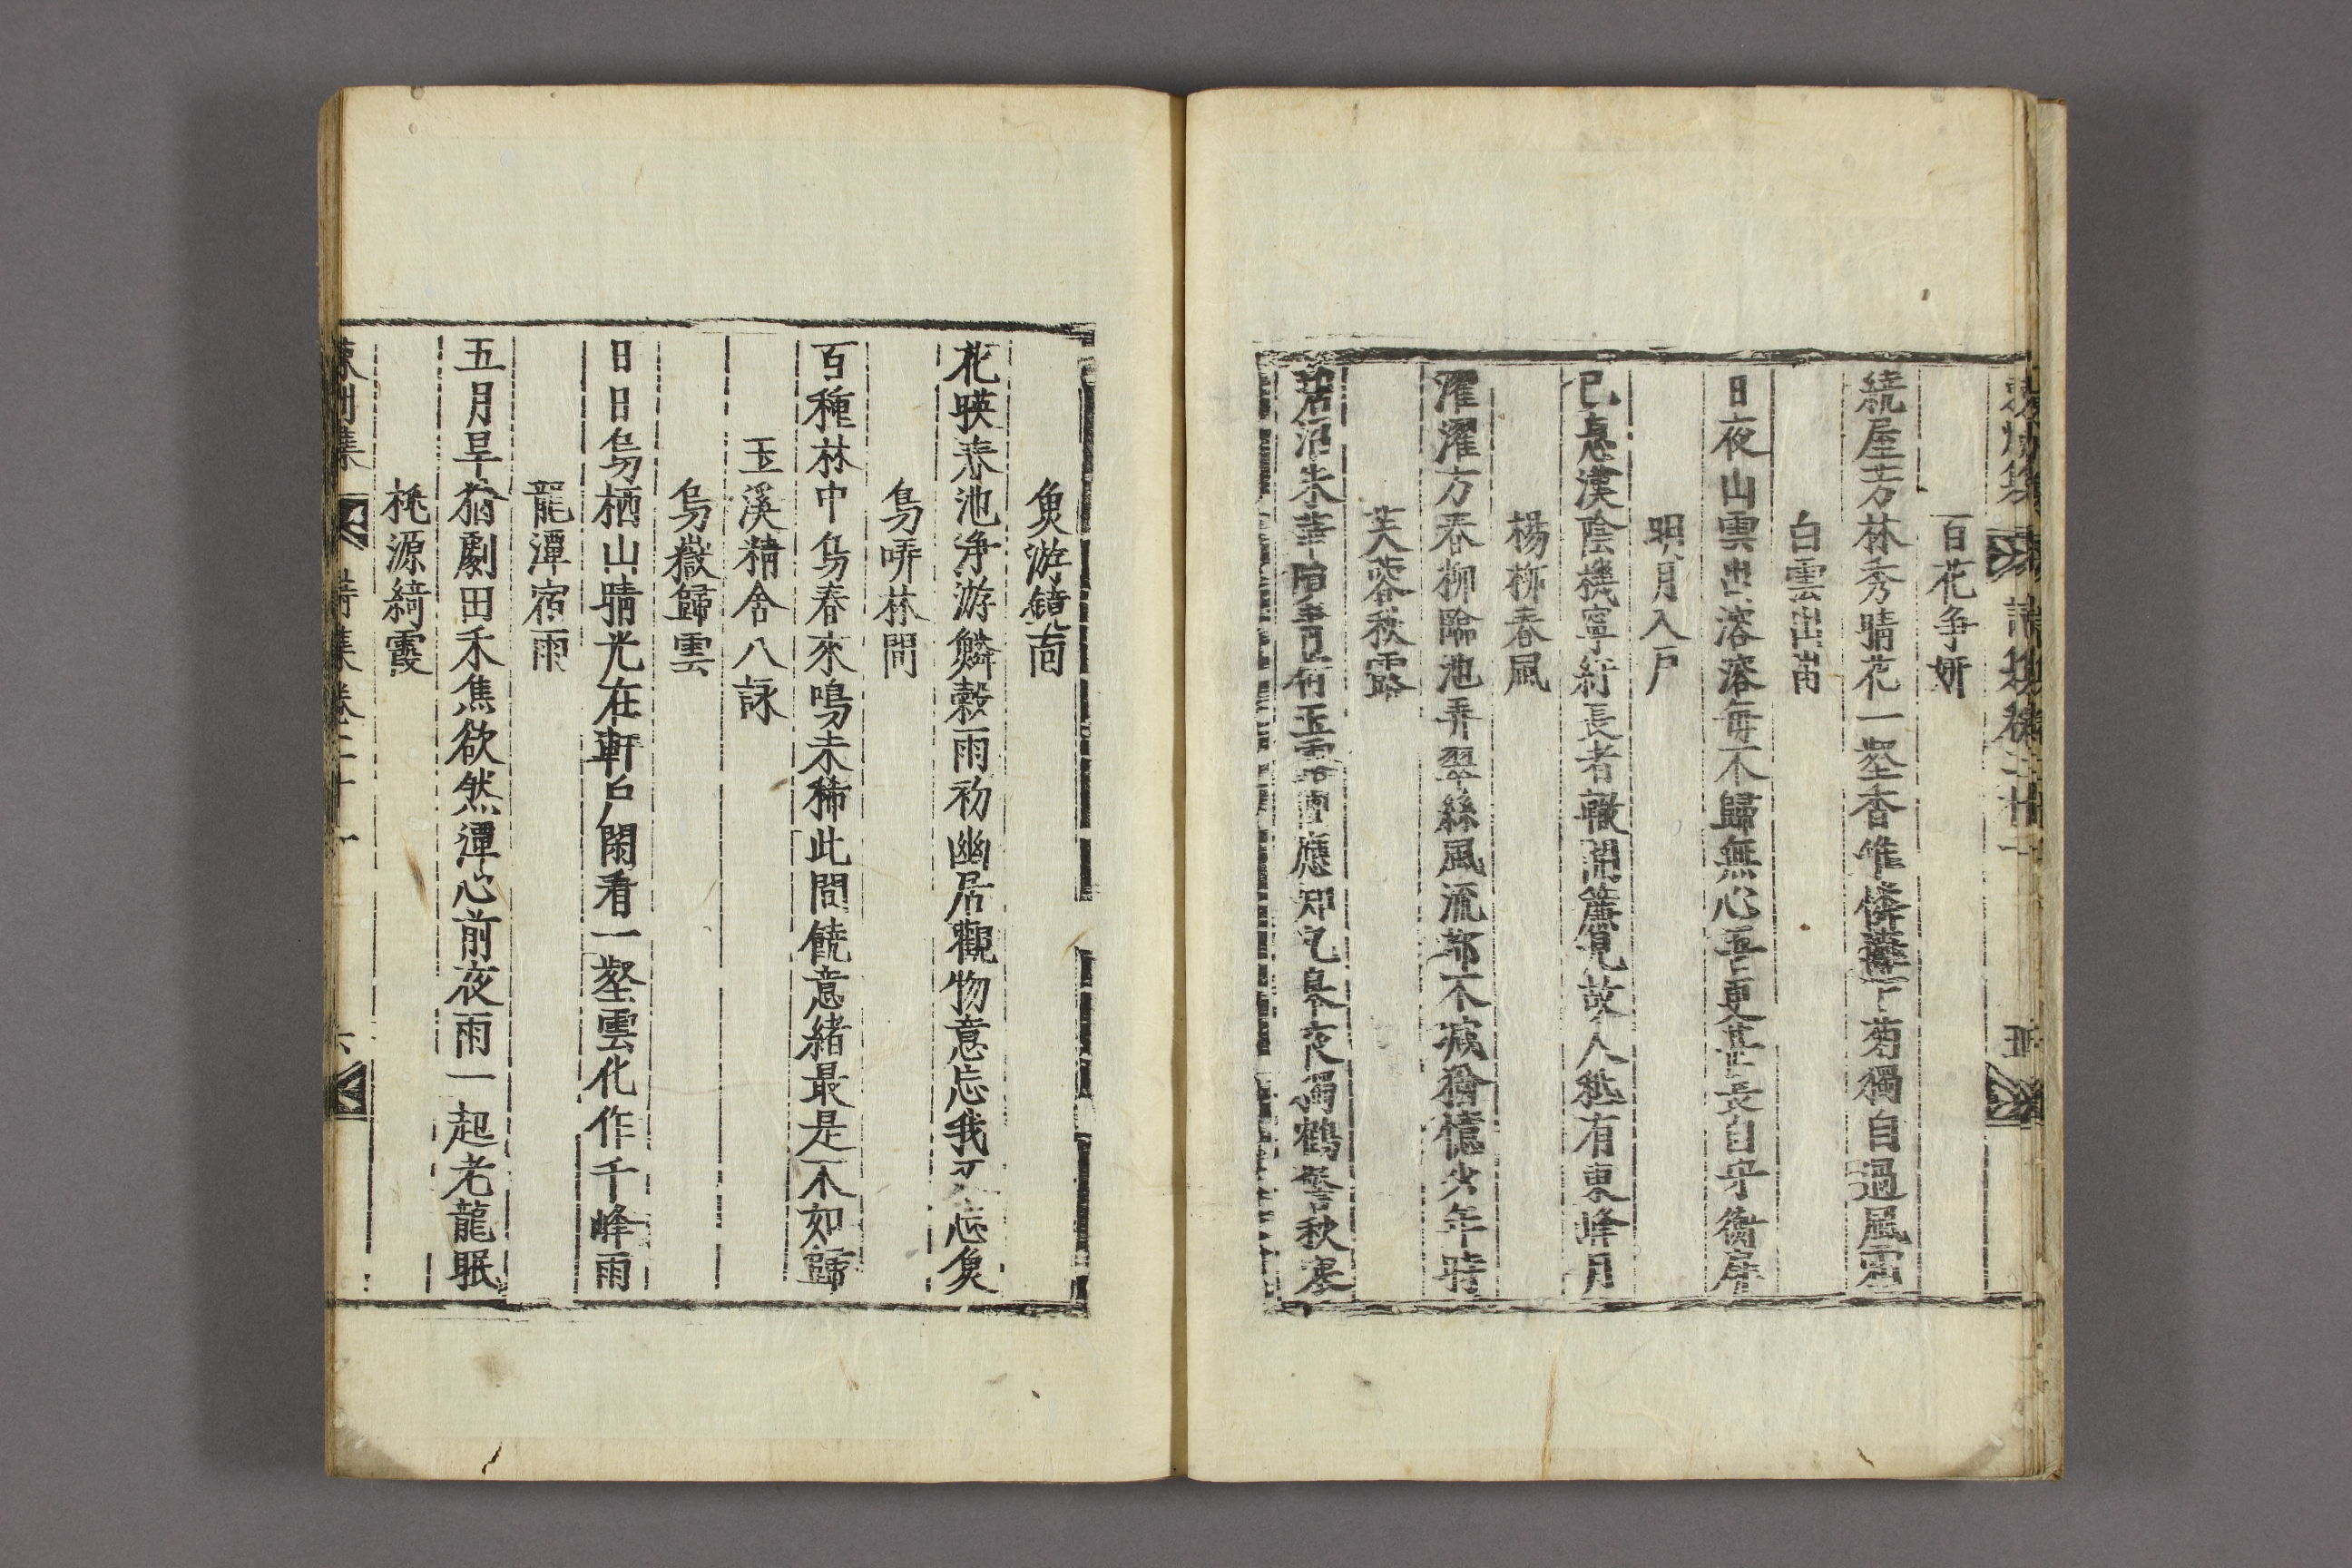 詩集卷二十一 五
百花争妍
繞屋芳林秀晴花一壑香惟憐籬下菊獨自過風霜
白雲出岫
日夜山雲出溶溶每不歸無心吾更甚長自守衡扉
明月入戶
已息漢陰機寧紆長者轍開簾見故人秪有東峰月
楊柳春風
濯濯方春柳臨池弄翠絲風流都不减猶憶少年時
芙蓉秋露
碧沼朱華暗青荷玉露團應知九皋夜獨鶴警秋寒
魚游鏡面
花暎春池净游鱗縠雨初幽居觀物意忘我不忘魚
鳥哢林間
百種林中鳥春來鳴未稀此間饒意緒最是不如歸
玉溪精舍八詠
烏嶽歸雲
日日烏栖山晴光在軒戶閑看一壑雲化作千峰雨
龍潭宿雨
五月旱猶劇田禾焦欲然潭心前夜雨一起老龍眠
桃源綺霞
東川集 詩集卷二十一 六